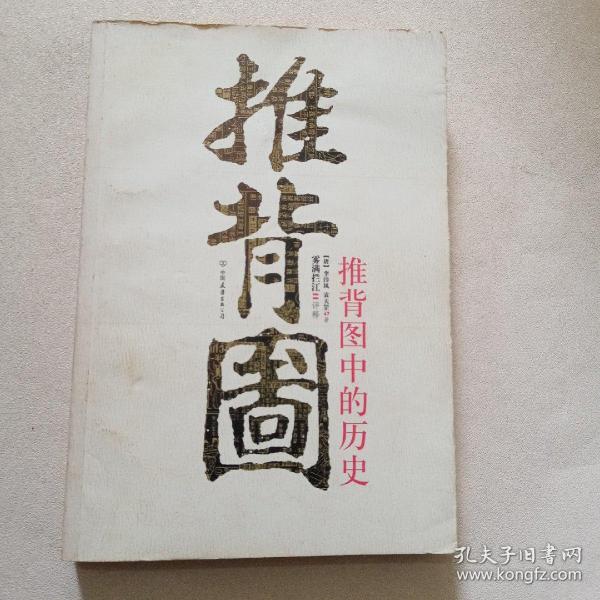 推背圖
推背图中的历史
【唐】李淳风 袁天罡 著
雾满拦江 评释
中国友谊出版公司
孔夫子旧书网
www.kongfz.com